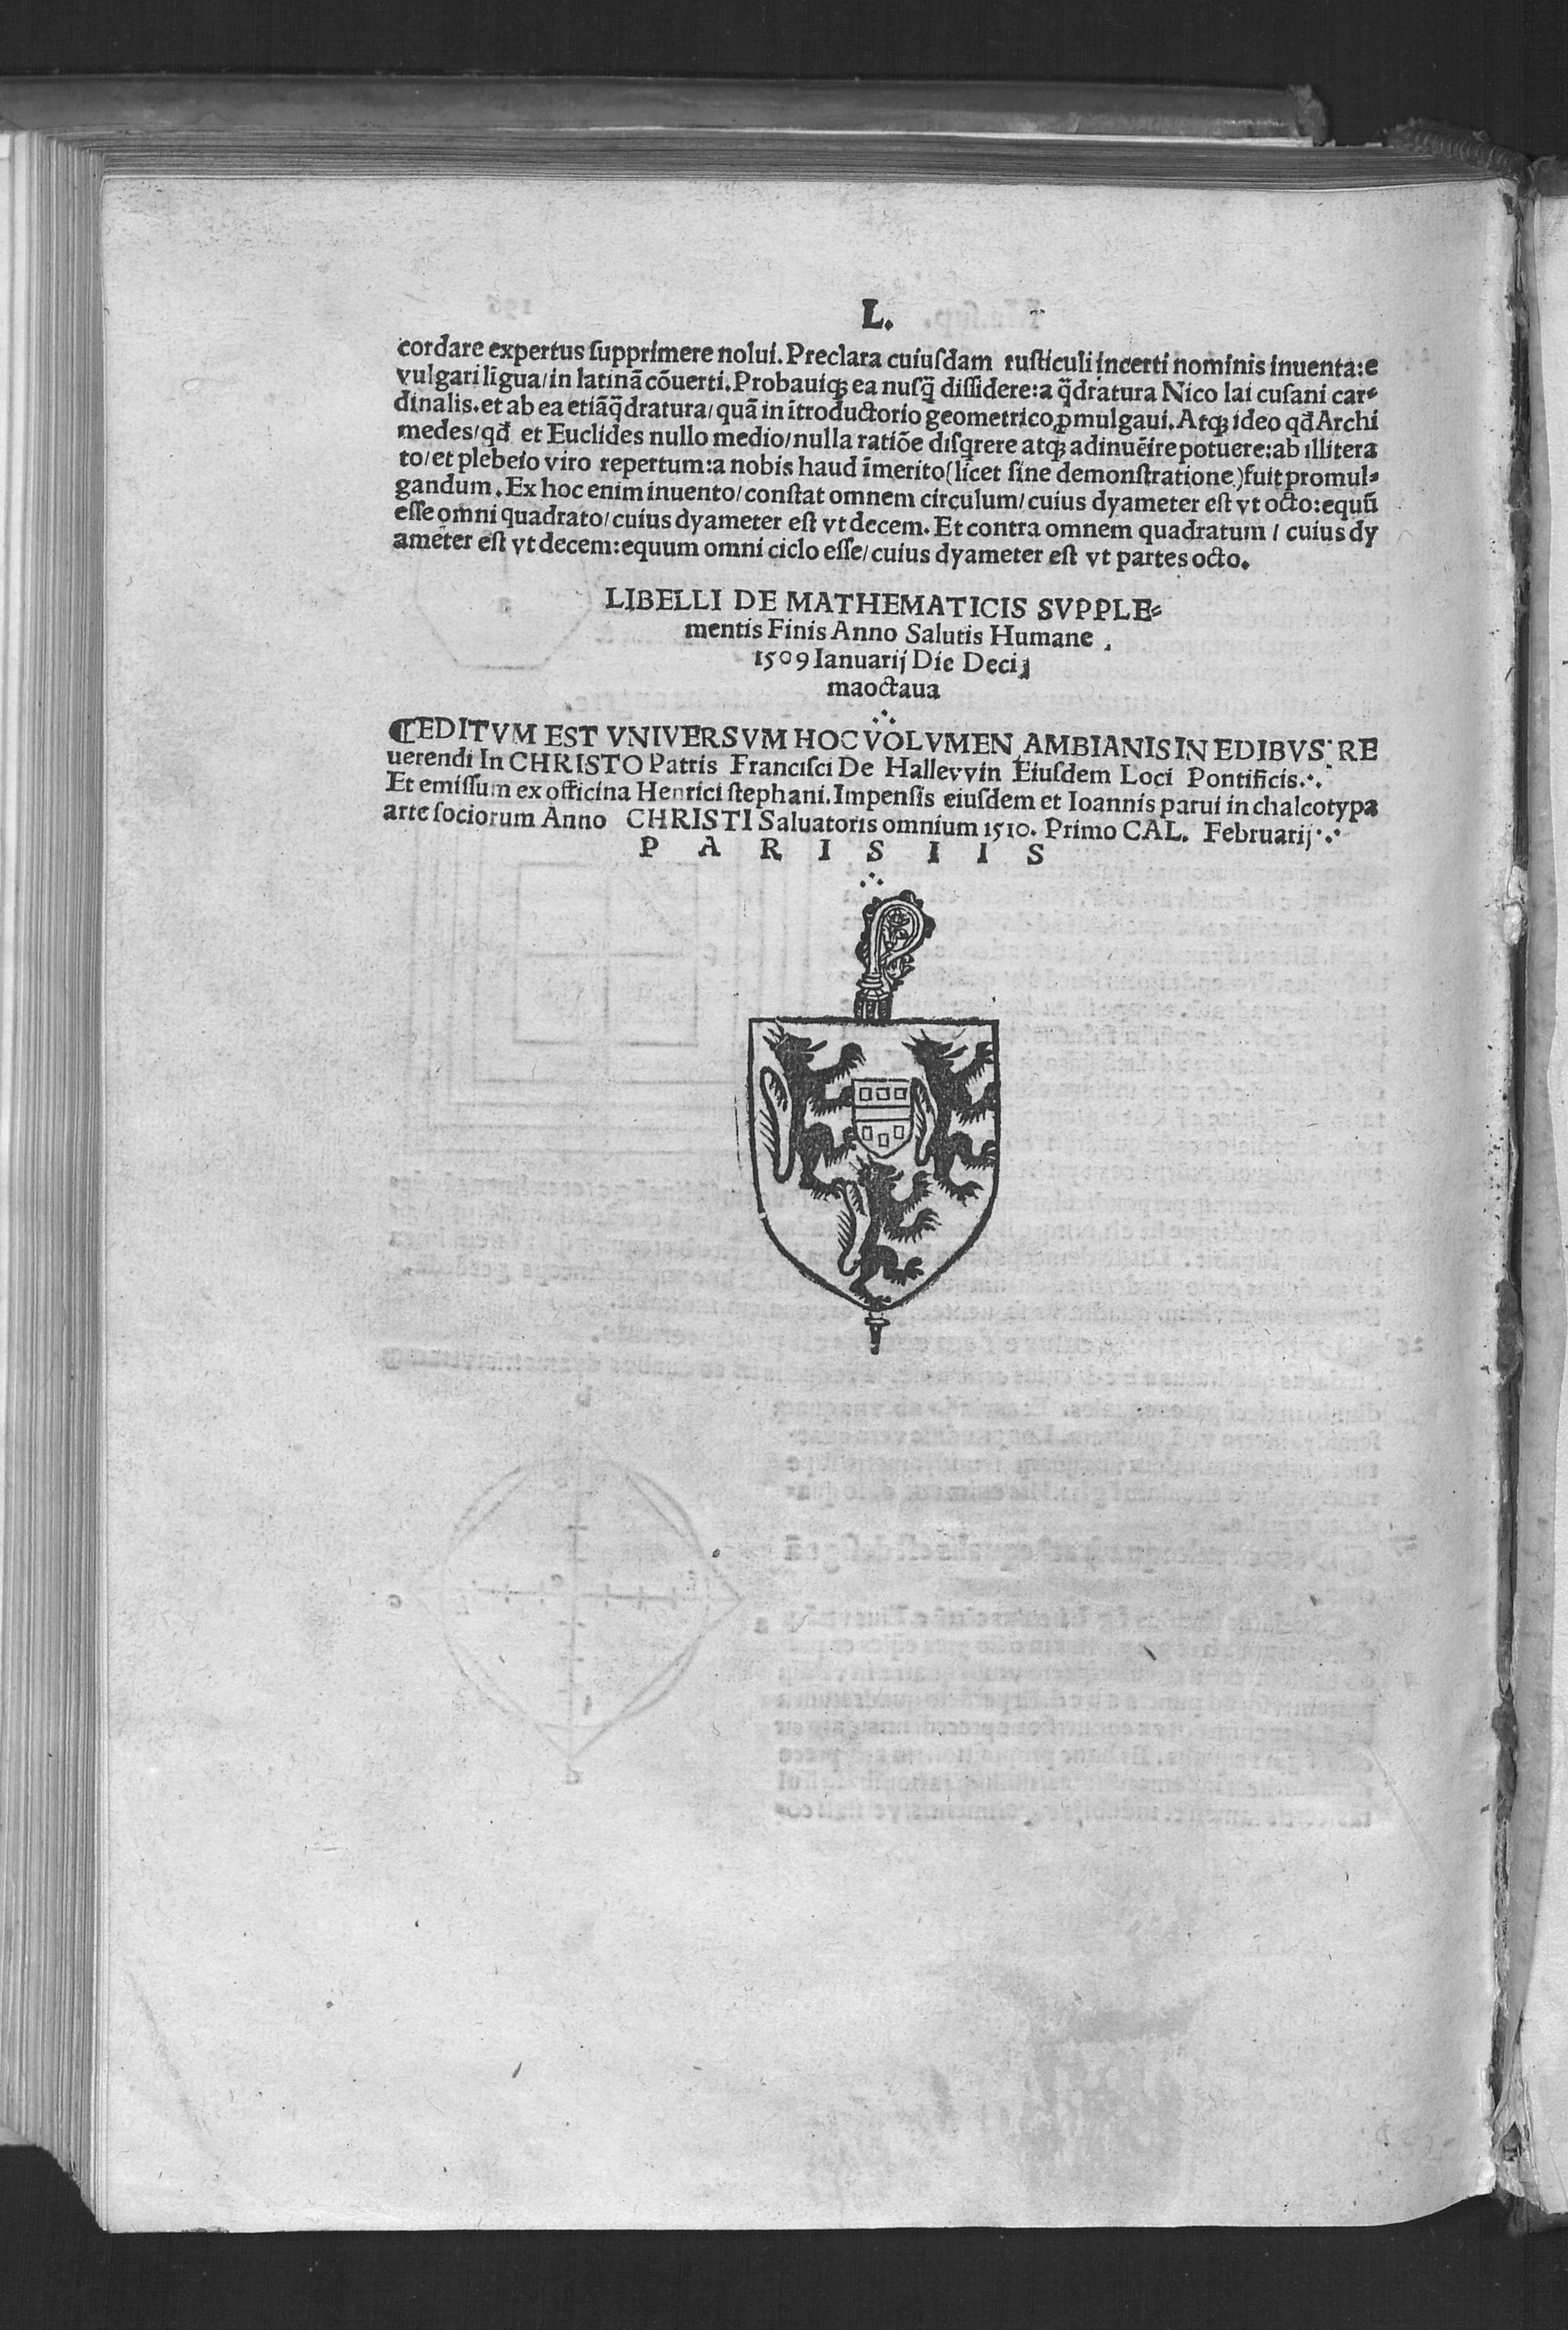 L.
cordare expertus supprimere nolui. Preclara cuiusdam rusticuli incerti nominis inuenta: e
vulgari līgua/ in latinā cōuerti. Probauiq̧ ea nusq̄ dissidere: a q̄dratura Nico lai cusani car⸗
dinalis. et ab ea etiāq̄dratura/ quā in ītroductorio geometrico ꝓmulgaui. Atq̧ ideo qđ Archi
medes/ qđ et Euclides nullo medio/ nulla ratiōe disq̄rere atq̧ adinuēire potuere: ab illitera
to/ et plebeio viro repertum: a nobis haud īmerito (licet sine demonstratione) fuit promul⸗
gandum. Ex hoc enim inuento/ constat omnem circulum/ cuius dyameter est vt octo: equū
esse omni quadrato/ cuius dyameter est vt decem. Et contra omnem quadratum / cuius dy
ameter est vt decem: equum omni ciclo esse/ cuius dyameter est vt partes octo.
LIBELLI DE MATHEMATICIS SVPPLE⸗
mentis Finis Anno Salutis Humane .
1509 Ianuarij Die Deci
maoctaua
⁖
¶EDITVM EST VNIVERSVM HOC VOLVMEN AMBIANIS IN EDIBVS RE
uerendi In CHRISTO Patris Francisci De Hallevvin Eiusdem Loci Pontificis.
Et emissum ex officina Henrici stephani. Impensis eiusdem et Ioannis parui in chalcotypa
arte sociorum Anno CHRISTI Saluatoris omnium 1510. Primo CAL. Februarij
P A R I S I I S